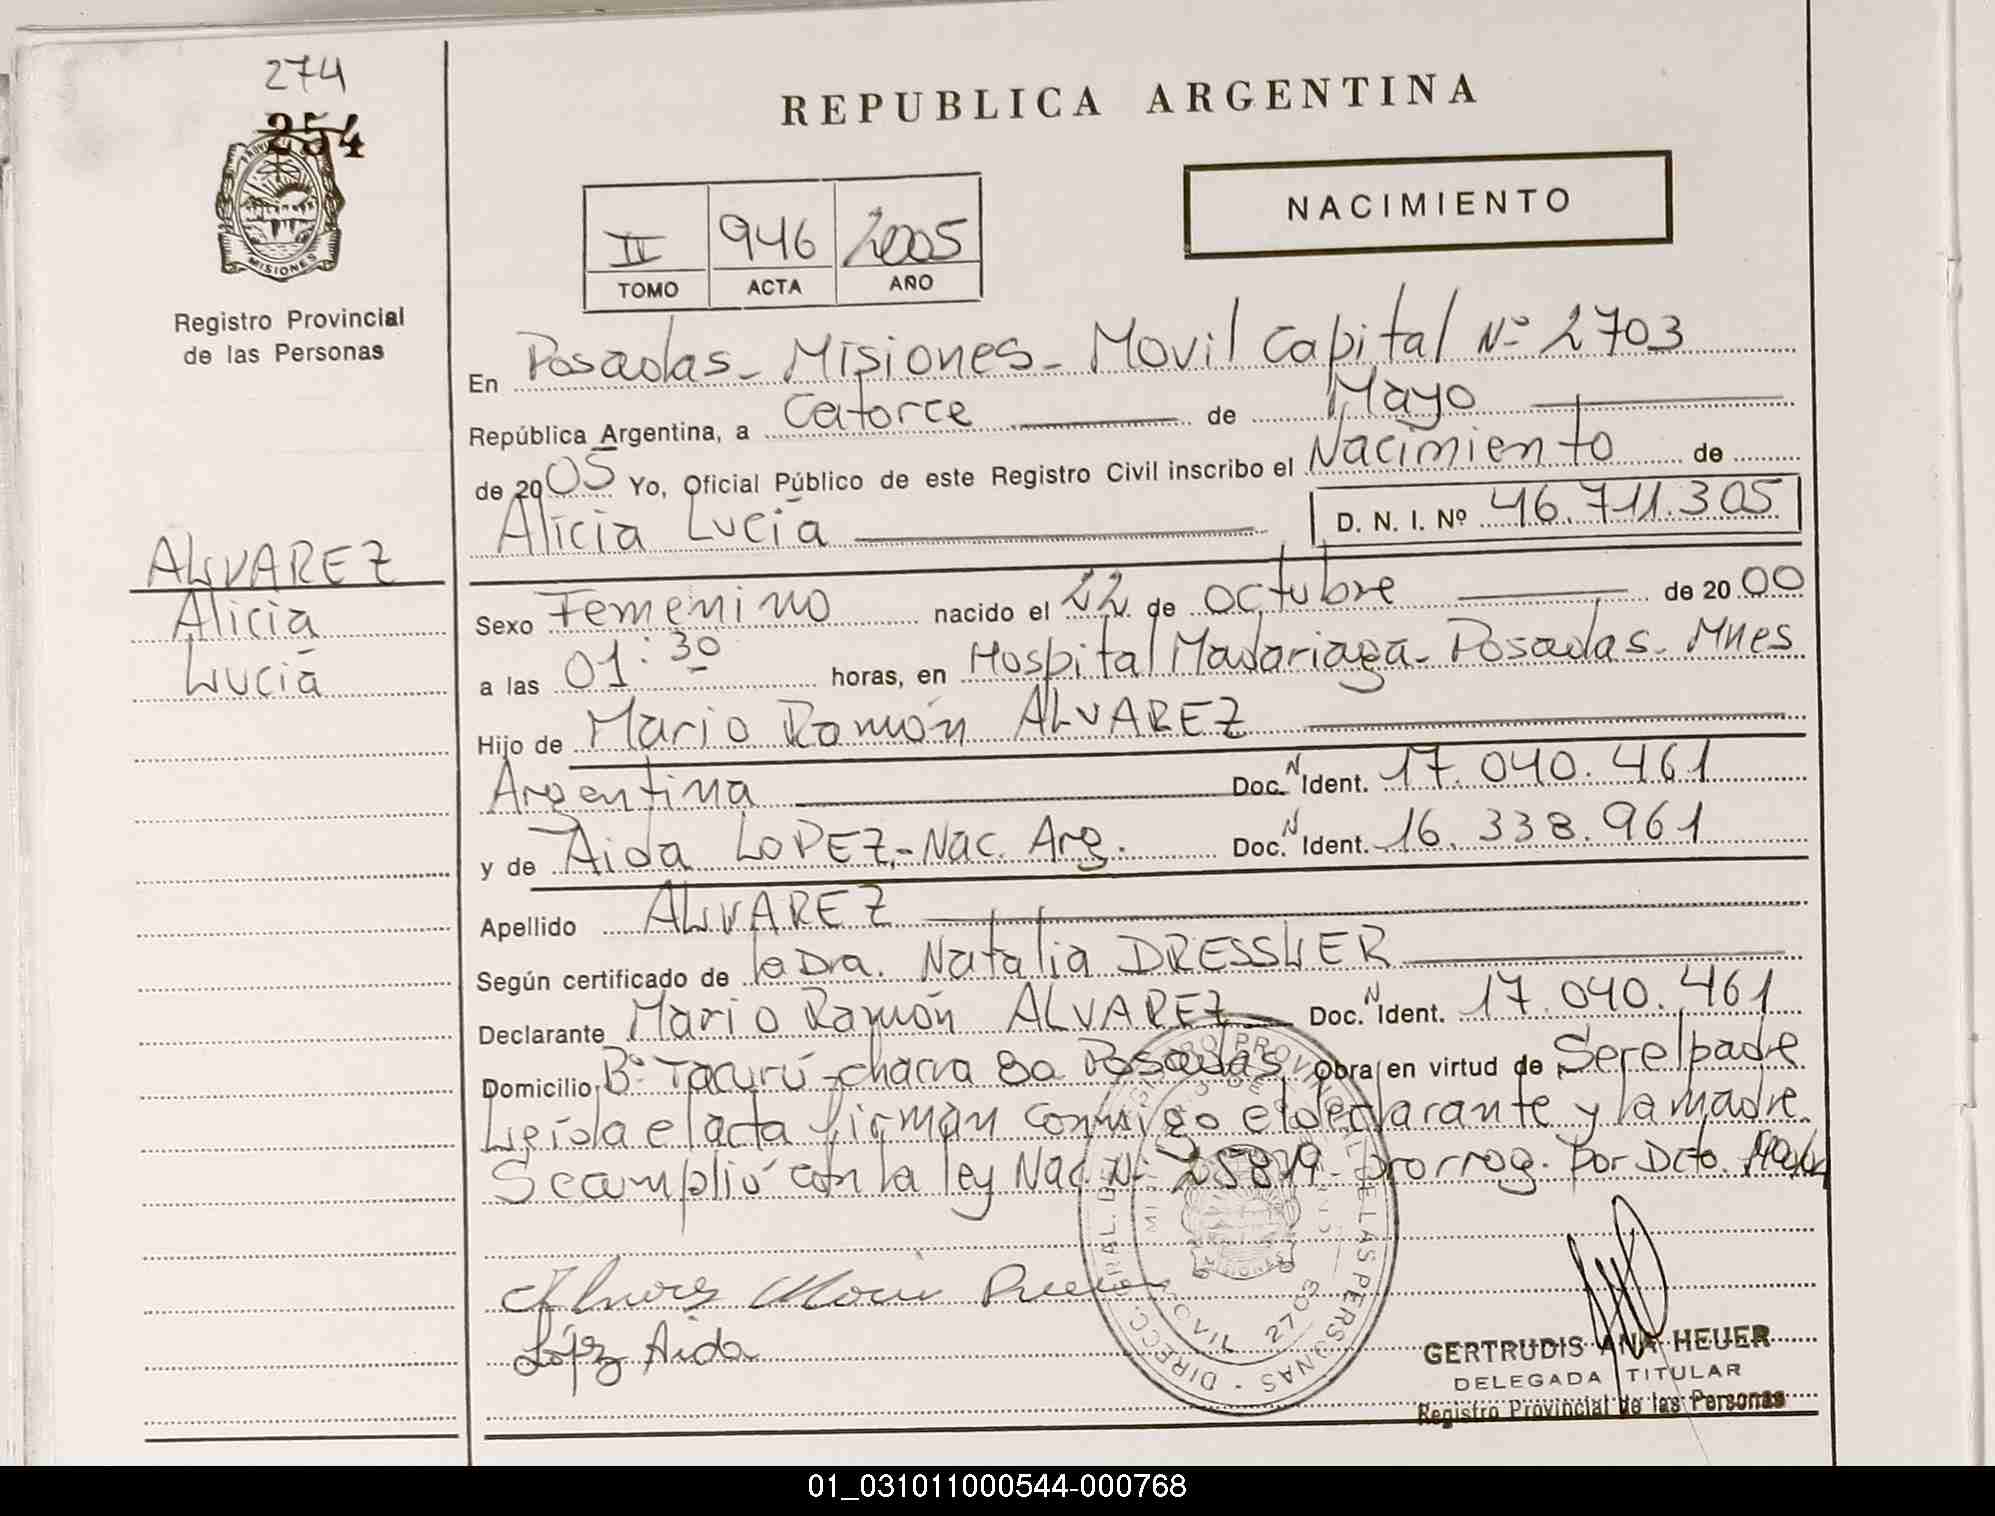 274
254
PROVINCIA
MISIONES
Registro Provincial
de las Personas
REPUBLICA ARGENTINA
NACIMIENTO
II 946 2005
TOMO ACTA AÑO
En Posadas - Misiones - Movil Capital Nº 2703
República Argentina, a Catorce de Mayo
de 2005 Yo, Oficial Público de este Registro Civil inscribo el Nacimiento de
Alicia Lucía D. N. I. Nº 46.711.305
ALVAREZ
Alicia
Lucía
Sexo Femenino nacido el 22 de octubre de 2000
a las 01:30 horas, en Hospital Madariaga - Posadas - Mnes
Hijo de Mario Ramón ALVAREZ
Argentina Doc. N Ident. 17.040.461
y de Aida LOPEZ.- Nac. Arg. Doc. N Ident. 16.338.961
Apellido ALVAREZ
Según certificado de la Dra. Natalia DRESSLER
Declarante Mario Ramón ALVAREZ Doc. N Ident. 17.040.461
Domicilio Bº Tacurú - chacra 80 Posadas Obra en virtud de Ser el padre
Leída el acta firman conmigo el declarante y la madre
Se cumplió con la ley Nac. Nº 25819 - prorrog. por Dcto.
Alvarez Mario
López Aida
DIRECC. GRAL. DEL REGISTRO PROVINCIAL DE LAS PERSONAS
MOVIL 2703
MISIONES
GERTRUDIS ANA HEUER
DELEGADA TITULAR
Registro Provincial de las Personas
01_031011000544-000768